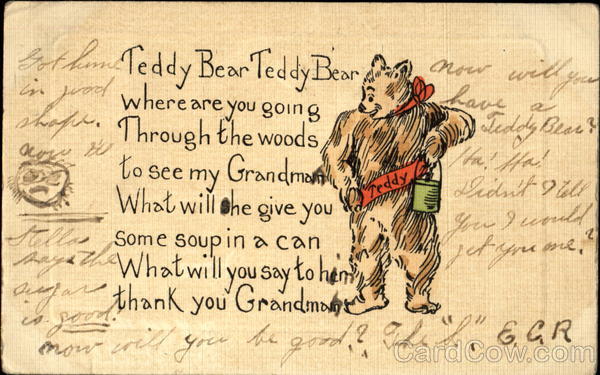 Teddy Bear Teddy Bear
where are you going
Through the woods
to see my Grandman
What will she give you
some soup in a can
What will you say to him
thank you Grandman
Teddy
Got home
in good
shape.
now
Stella
says the
sugar
is good.
now will you
have a
Teddy Bear?
Ha! Ha!
Didn't I tell
you I would
get you one?
now will you be good? The "S". E.C.R
CardCow.com